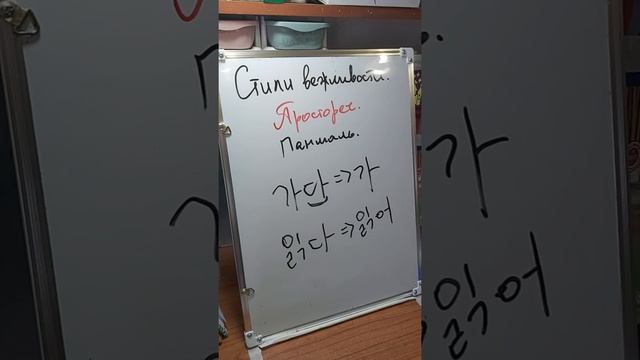 Стили вежливости.
Просторех.
Панмаль.
가다 => 가
읽다 => 읽어